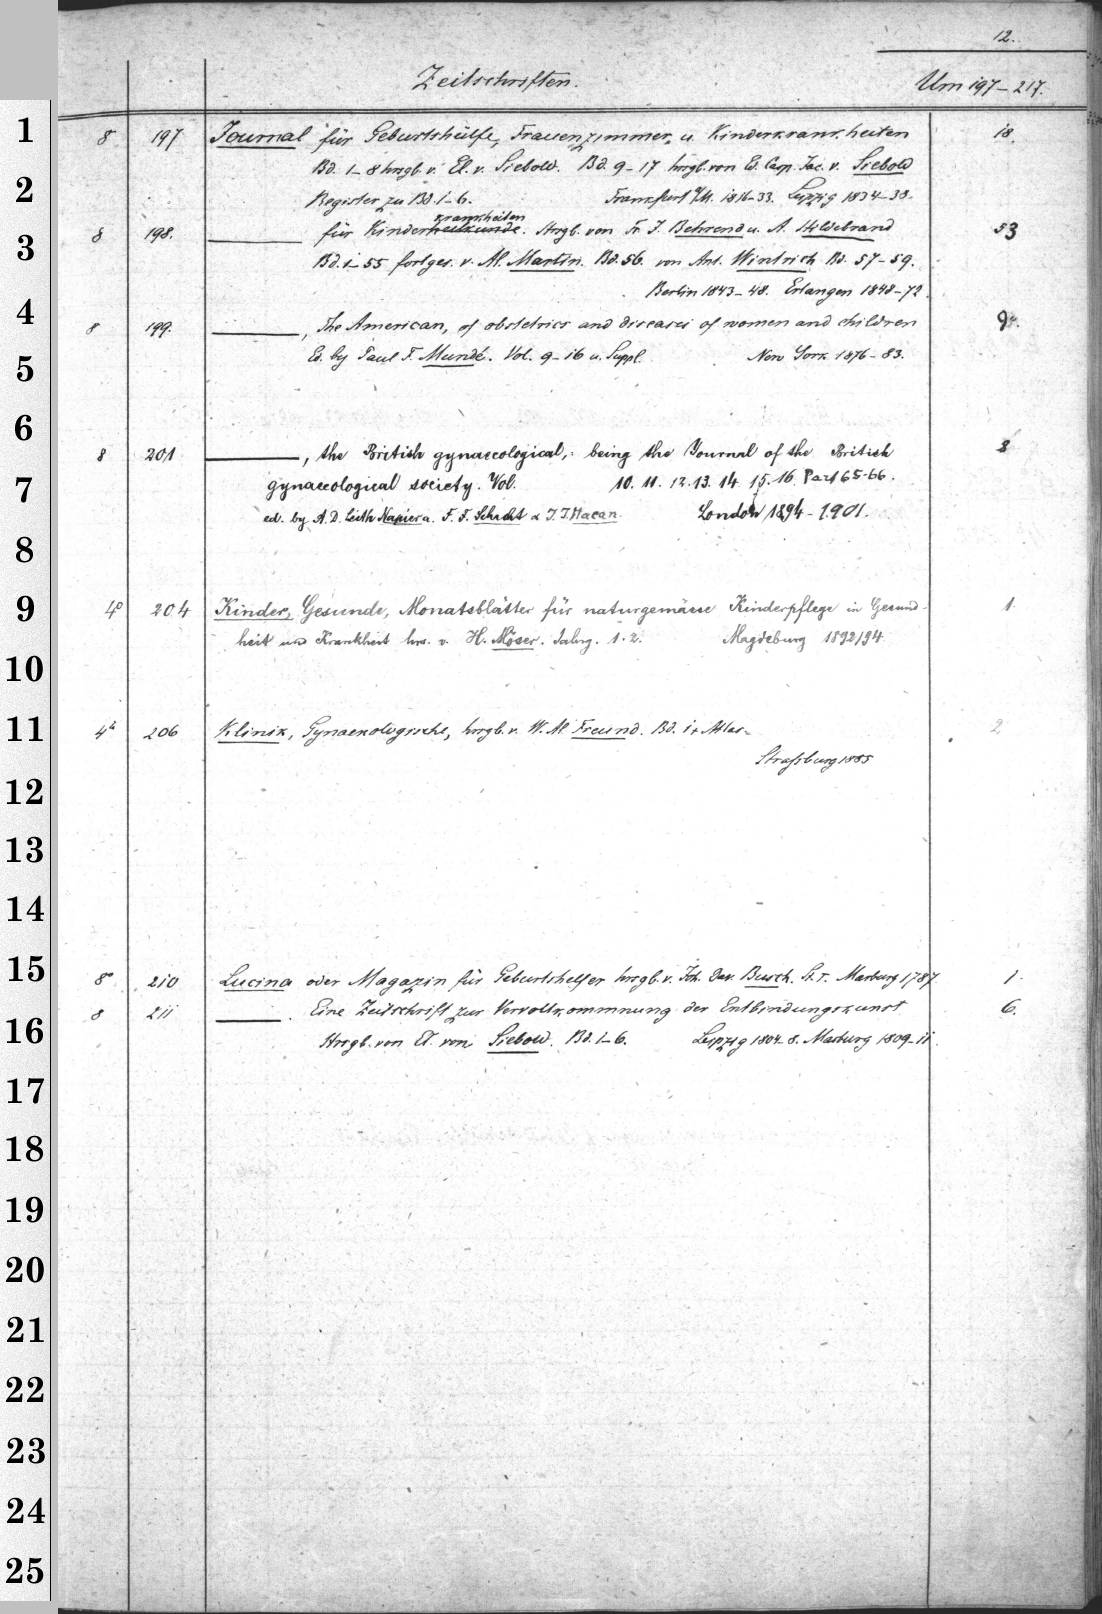 12.
Zeitschriften. Um 197-217.
1 8 197 Journal für Geburtshülfe, Frauenzimmer- u. Kinderkrankheiten 18.
Bd. 1-8 hrsgb. v. El. v. Siebold. Bd. 9-17 hrsgb. von Ed. Casp. Jac. v. Siebold
2 Register zu Bd. 1-6. Frankfurt a/M. 1816-33. Leipzig 1834-38.
krankheiten
3 8 198. für Kinderheilkunde. Hrsgb. von Fr. J. Behrend u. A. Hildebrand 53
Bd. 1-55 fortges. v. Al. Martin. Bd. 56. von Ant. Wintrich Bd. 57-59.
Berlin 1843-48. Erlangen 1848-72.
4 8 199. , The American, of obstetrics and diseases of women and children
5 Ed. by Paul F. Mundé. Vol. 9-16 u. Suppl. New York 1876-83.
6
8 201 , the British gynaecological, being the Journal of the British 8
7 gynaecological society. Vol. 10. 11. 12. 13. 14. 15. 16. Part 65-66.
ed. by A. D. Leith Napier u. F. F. Schacht & J. J. Macan. London 1894-1901.
8
9 4° 204 Kinder, Gesunde, Monatsblätter für naturgemässe Kinderpflege in Gesund- 1.
heit und Krankheit hrs. v. H. Möser. Jahrg. 1. 2. Magdeburg 1892/94
10
11 4° 206 Klinik, Gynaekologische, hrsgb. v. W. A. Freund. Bd. 1 + Atlas. 2
Straßburg 1885
12
13
14
15 8° 210 Lucina oder Magazin für Geburtshelfer hrsgb. v. Joh. Dav. Busch. St. 1. Marburg 1787. 1
8 211 . Eine Zeitschrift zur Vervollkommnung der Entbindungskunst 6.
16 Hrsgb. von El. von Siebold. Bd. 1-6. Leipzig 1804-8. Marburg 1809-11.
17
18
19
20
21
22
23
24
25